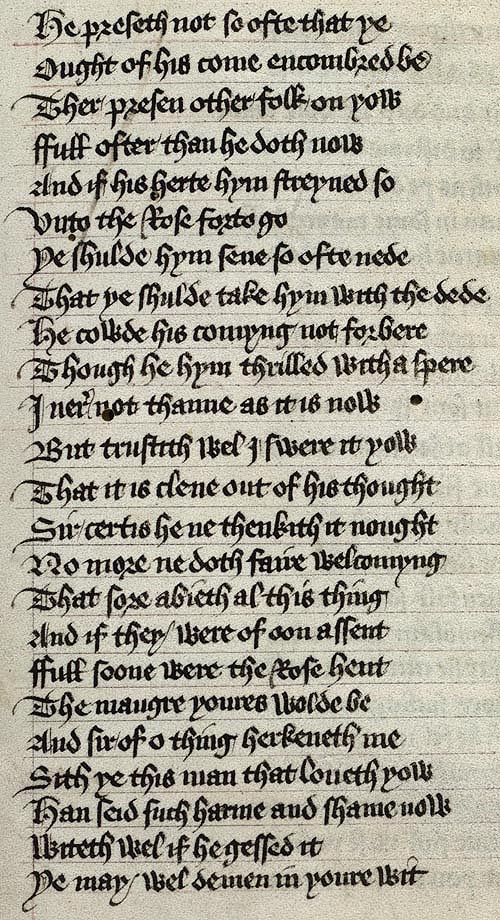 He preseth not so ofte that ye
Ought of his come encombred be
Ther presen other folk on yow
ffull ofter than he doth now
And if his herte hym streyned so
Vnto the Rose forto go
Ye shulde hym sene so ofte nede
That ye shulde take hym with the dede
He cowde his comyng not forbere
Though he hym thrilled with a spere
I ner not thanne as it is now
But trustith wel I swere it yow
That it is clene out of his thought
Sir certis he ne thenkith it nought
No more ne doth faire welcomyng
That sore abieth al this thing
And if they were of oon assent
ffull soone were the Rose hent
The maugre youres wolde be
And sir of o thing herkeneth me
Sith ye this man that loueth yow
Han seid such harme and shame now
Witeth wel if he gessed it
Ye may wel demen in youre wit